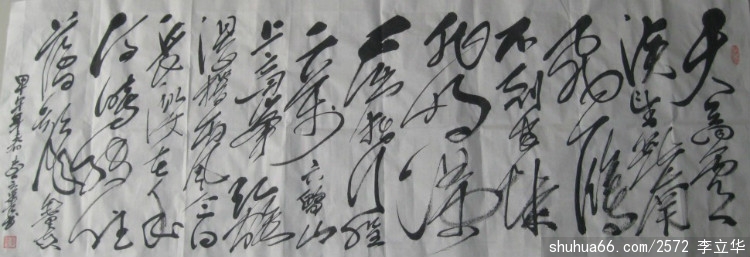 天高云
淡望断南
飞雁
不到长城
非好汉
屈指行程
二万六盘山
上高峰红旗
漫卷西风今日
长缨在手
何时缚住
苍龙
甲午年 李立华书
shuhua66.com/2572 李立华